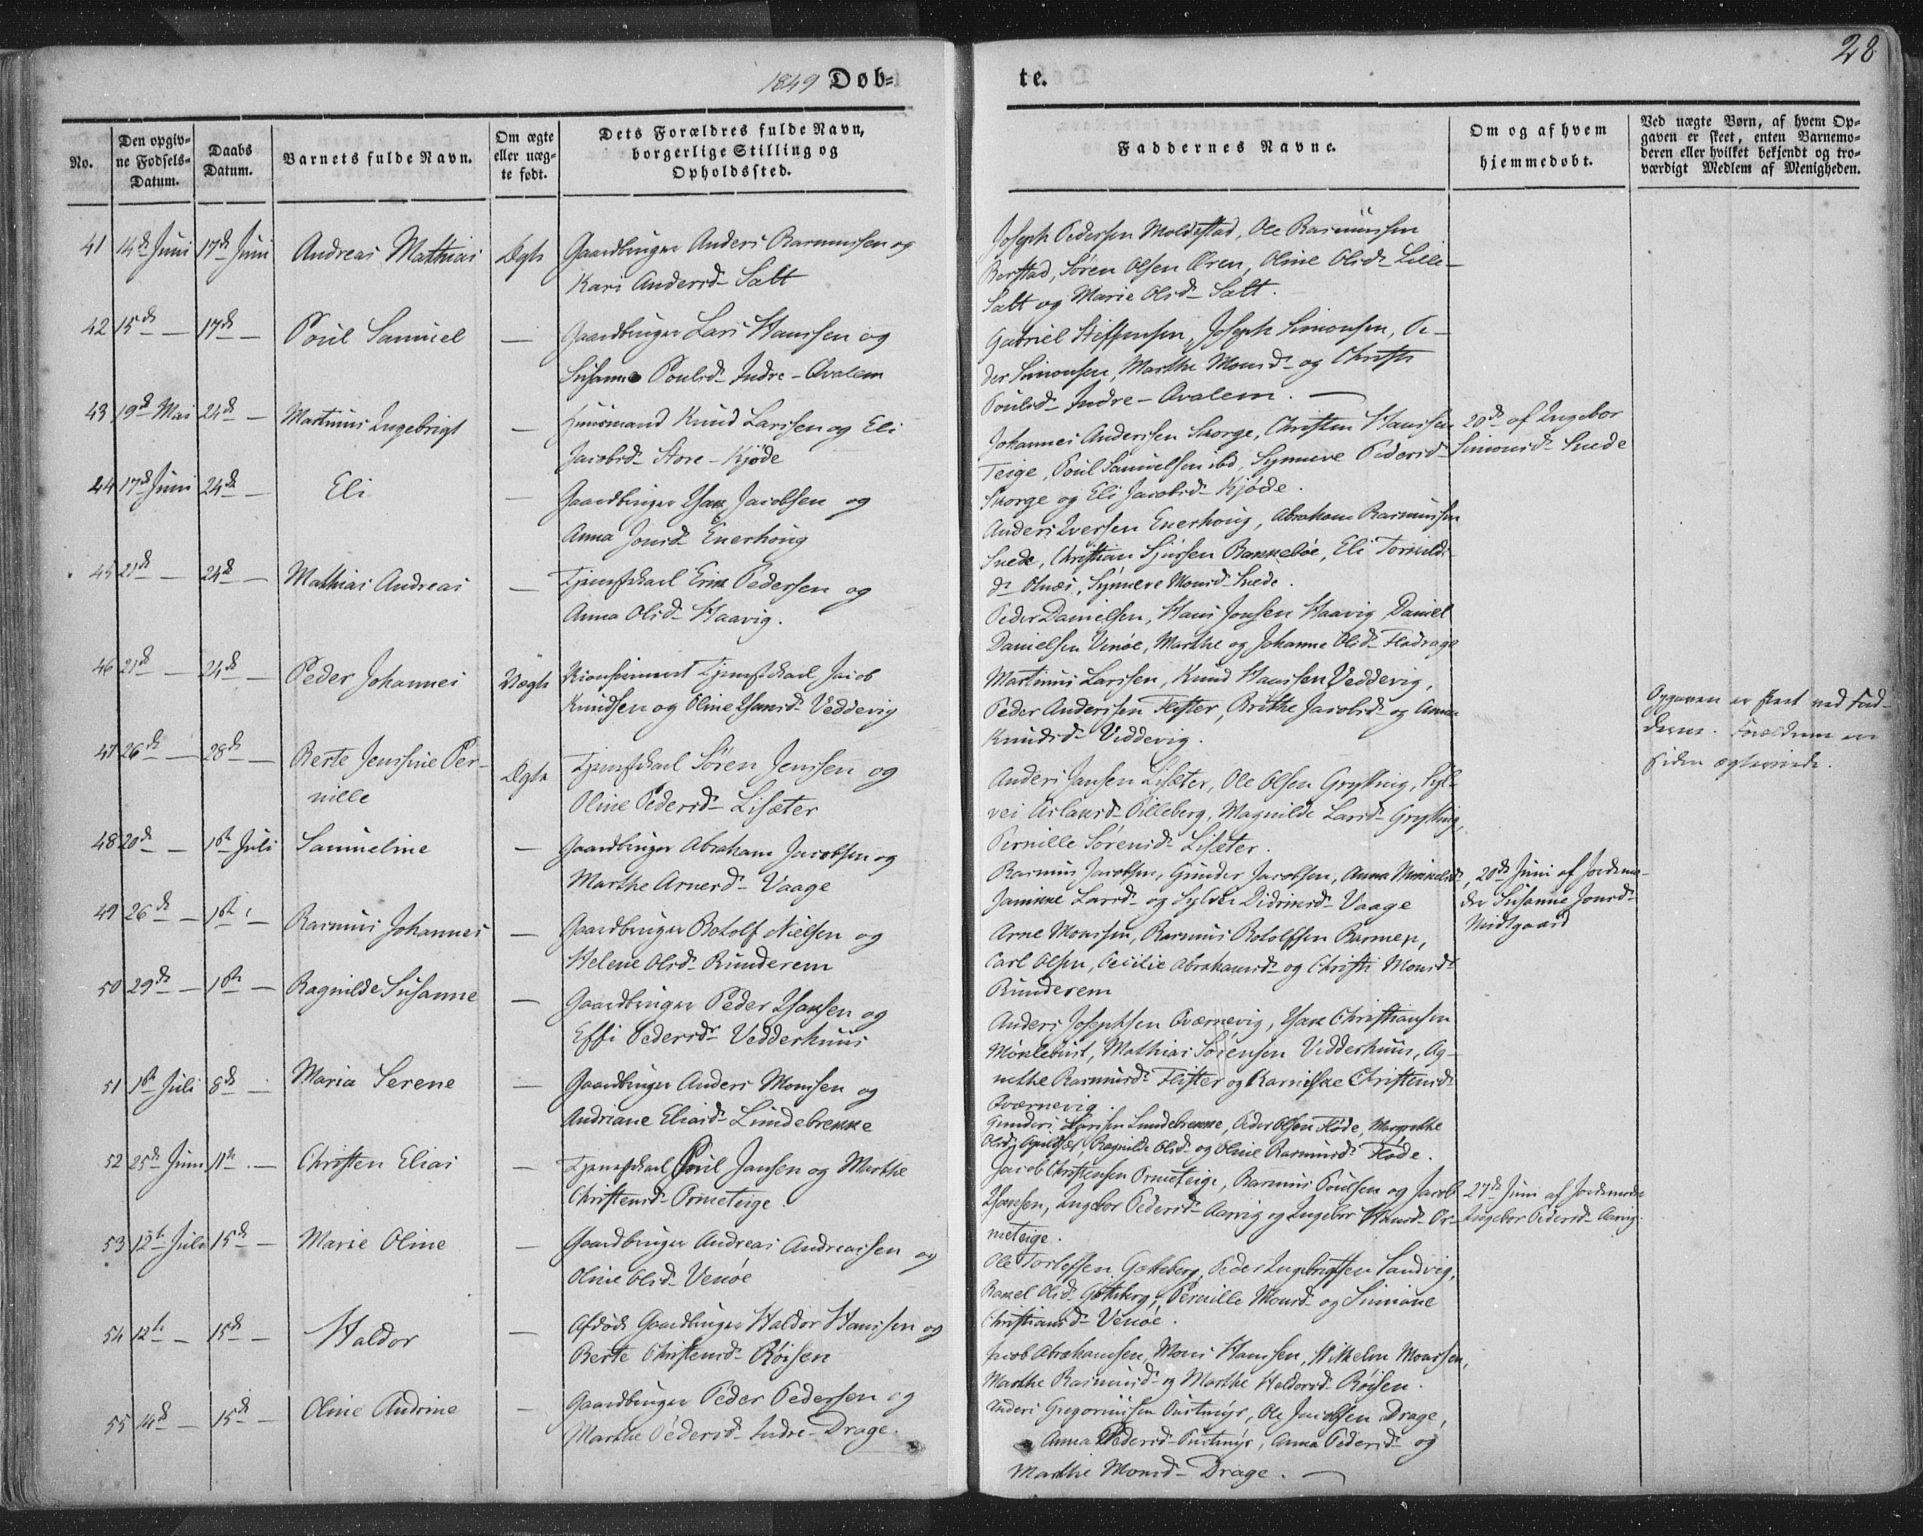 28
1849 Døb-
te.
No.
Den opgiv-
ne Fødsels-
Datum.
Daabs
Datum.
Barnets fulde Navn.
Om ægte
eller uæg-
te født.
Dets Forældres fulde Navn,
borgerlige Stilling og
Opholdssted.
Faddernes Navne.
Om og af hvem
hjemmedøbt.
Ved uægte Børn, af hvem Op-
gaven er skeet, enten Barnemo-
deren eller hvilket bekjendt og tro-
værdigt Medlem af Menigheden.
41 14de Juni 17de Juni Andreas Mathias Ægte Gaardbruger Anders Rasmussen og
Kari Andersd- Salt
Joseph Pedersen Moldestad, Ole Rasmussen
Berstad, Søren Olsen Øren, Oline Olsd- Lille-
Salt og Marie Olsd- Salt.
42 15de — 17de — Poul Samuel — Gaardbruger Lars Hanssen og
Susanne Poulsd- Indre-Qvalem
Gabriel Steffensen, Joseph Simonsen, Pe-
der Simonsen, Marthe Monsd- og Christi
Poulsd- Indre-Qvalem. —
43 19de Mai 24de — Martinus Ingebrigt — Huusmand Knud Larssen og Eli
Jacobsd- Store-Kjøde
Johannes Anderssen Skorge, Christen Hanssen
Teige, Poul Samuelsen ibd, Synneve Pedersd-
Skorge og Eli Jacobsd- Kjøde.
20de af Ingebor
Simonsd- Svede
44 17de Juni 24de — Eli — Gaardbruger Hans Jacobsen og
Anna Jonsd- Enerhoug
Anders Iversen Enerhoug, Abraham Rasmussen
Svede, Christian Sjurssen Barmebøe, Eli
Synneve Monsd- Svede.
45 21de — 24de — Mathias Andreas — Tjenestekarl Erik Pedersen og
Anna Olsd- Haavig.
Peder Danielsen, Hans Jonsen Haavig, Daniel
Danielsen Venøe, Marthe og Johanne Olsd-
46 21de — 24de — Peder Johannes Uægte Tjenestekarl Jacob
Knudsen og Oline Hansd- Veddevig
Martinus Larssen, Knud Hanssen Veddevig,
Peder Anderssen Flister, Brithe Jacobsd- og Anna
Knudsd- Veddevig.
Opgaven er skeet ved Fad-
derne. Forældrene ere
siden ægteviede.
47 26de — 28de — Berte Jenssine Per-
nille
Ægte Tjenestekarl Søren Jenssen og
Oline Pedersd- Lisæter
Anders Jansen Lisæter, Ole Olsen Grytting, Syl-
vei Erlandsd- Pilleberg, Magnilde Larsd- Grytting,
Pernille Sørensd- Lisæter.
48 20de — 1ste Juli Samueline — Gaardbruger Abraham Jacobsen og
Marthe Arnesd- Vaage
Rasmus Jacobsen, Gunder Jacobsen, Anna Mikkelsd-,
Larsd- og Sylvei Didriksd- Vaage
20de Juni af Jordmo-
der Susanne Jonsd-
Midtgaard
49 26de — 1ste — Rasmus Johannes — Gaardbruger Botolf Nielsen og
Helene Olsd- Runderem
Arne Monssen, Rasmus Botolfsen Barmen,
Carl Olsen, Cecilie Abrahamsd- og Christi Monsd-
Runderem
50 29de — 1ste — Ragnilde Susanne — Gaardbruger Peder Hansen og
Effi Pedersd- Vedderhuus
Anders Josephsen Qværnevig, Hans Christiansen
Møklebust, Mathias Sørensen Vedderhuus, Ag-
nethe Rasmusd- Flister og Karniske Christensd-
Qværnevig.
51 1ste Juli 8de — Maria Serene — Gaardbruger Anders Monssen og
Andriane Eliasd- Lundebrekke
Gunders Larssen Lundebrekke, Peder Olsen Fløde, Margrethe
Olsd- Ragnilde Olsd- og Oline Rasmusd- Fløde.
52 25de Juni 11te — Christen Elias — Tjenestekarl Poul Jansen og Marthe
Christensd- Ormeteige
Jacob Christensen Ormeteige, Rasmus Poulsen og Jacob
Hansen, Ingebor Pedersd- Aarvig og Ingebor Hansd- Or-
meteige.
27de Juni af Jordmoder
Ingebor Pedersd- Aarvig.
53 12te Juli 15de — Marie Oline — Gaardbruger Andreas Andreassen og
Oline Olsd- Venøe
Ole Torlefsen Gotteberg, Peder Ingebrigtsen Sandvig,
Olsd- Gotteberg, Pernille Monsd- og Simone
Christiansd- Venøe.
54 12te — 15de — Haldor — Afdøde Gaardbruger Haldor Hanssen og
Berte Christensd- Røisen
Jacob Abrahamsen, Mons Hanssen, Wilhelm Monssen,
Marthe Rasmusd- og Marthe Haldorsd- Røisen.
55 14de — 15de — Oline Andrine — Gaardbruger Peder Pedersen og
Marthe Pedersd- Indre-Drage.
Anders Gregoriussen Pustmyr, Ole Jacobsen Drage,
Anna Pedersd- Pustmyr, Anna Pedersd- og
Marthe Monsd- Drage. —